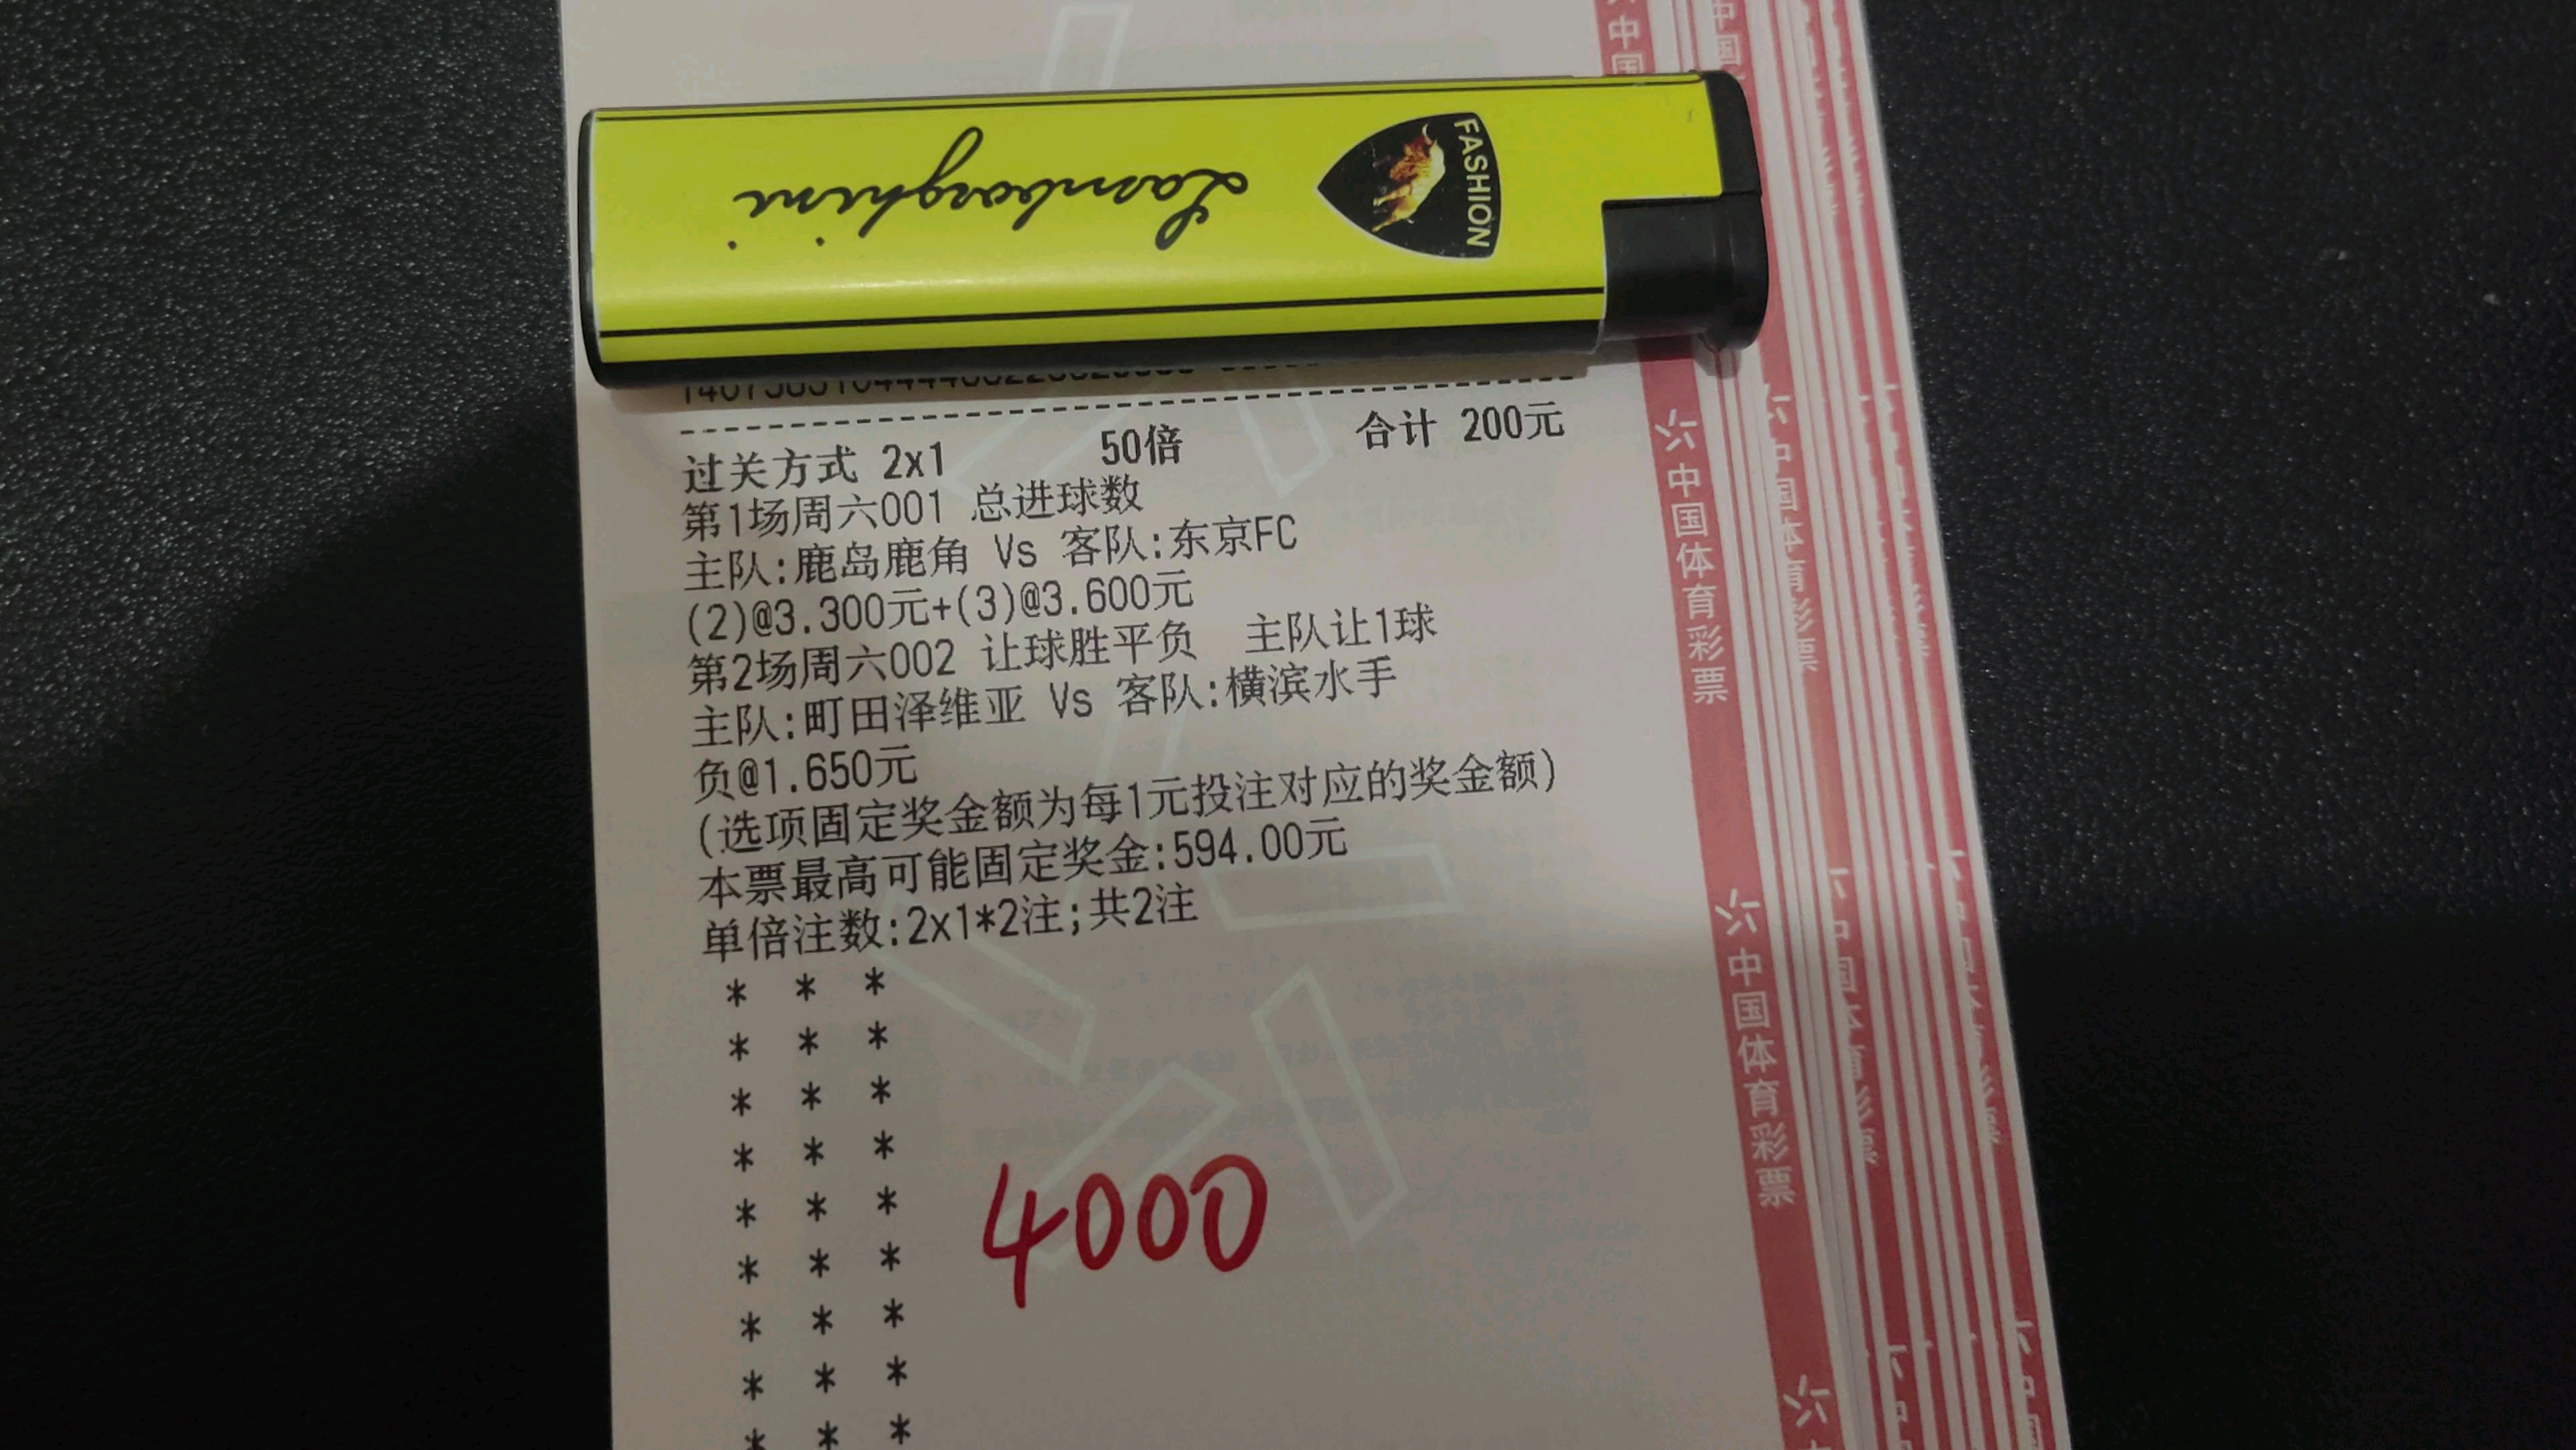 Lamborghini
FASHION
过关方式 2x1 50倍 合计 200元
第1场周六001 总进球数
主队:鹿岛鹿角 Vs 客队:东京FC
(2)@3.300元+(3)@3.600元
第2场周六002 让球胜平负 主队让1球
主队:町田泽维亚 Vs 客队:横滨水手
负@1.650元
(选项固定奖金额为每1元投注对应的奖金额)
本票最高可能固定奖金:594.00元
单倍注数:2x1*2注;共2注
* * *
* * *
* * *
* * *
* * *
* * *
* * *
* * *
* * *
4000
中国体育彩票
中国体育彩票
中国
中国体育彩票